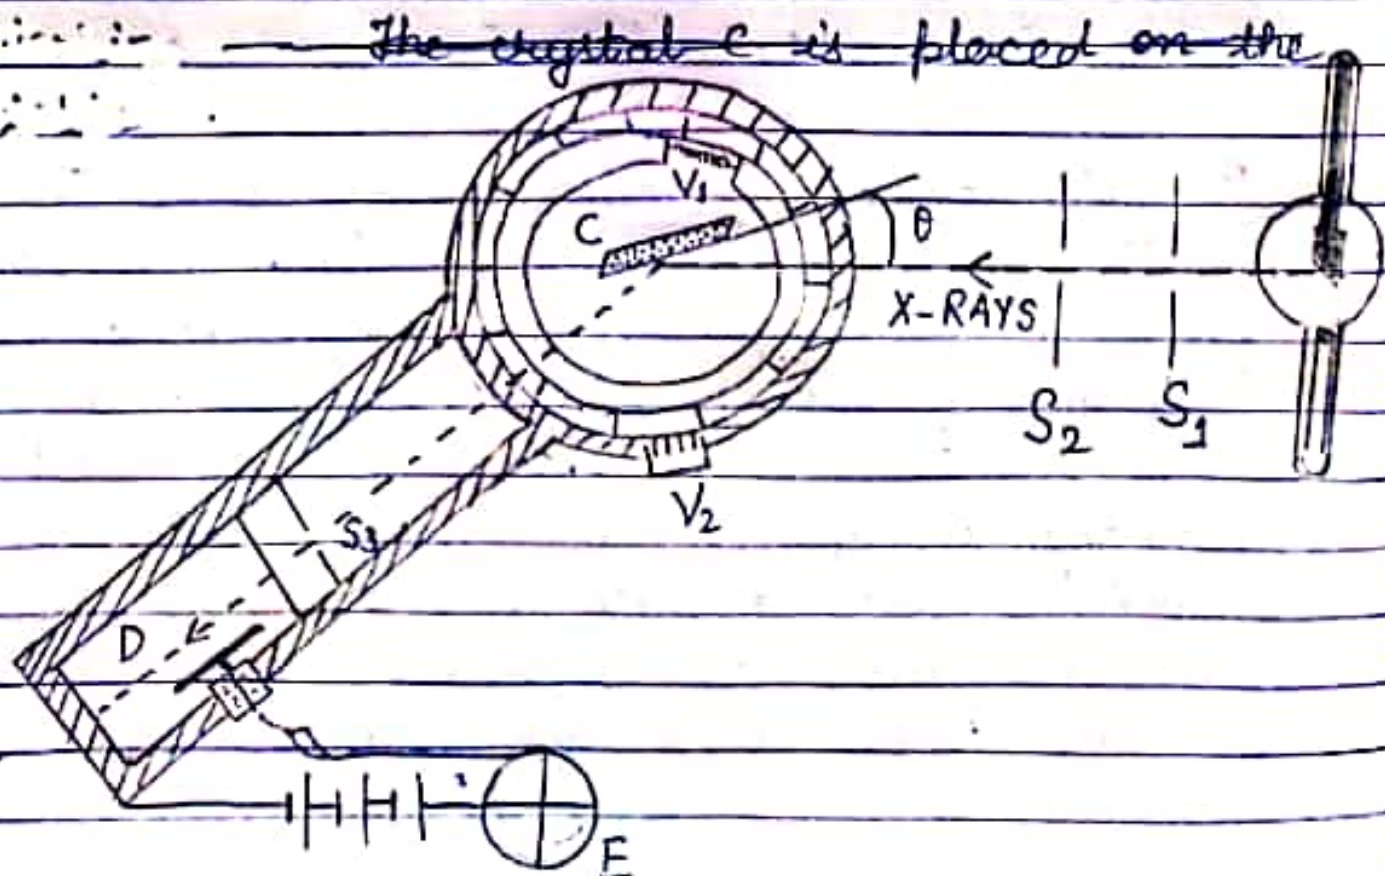 The crystal C is placed on the
V₁
C
θ
X-RAYS
S₂
S₁
V₂
S₃
D
E